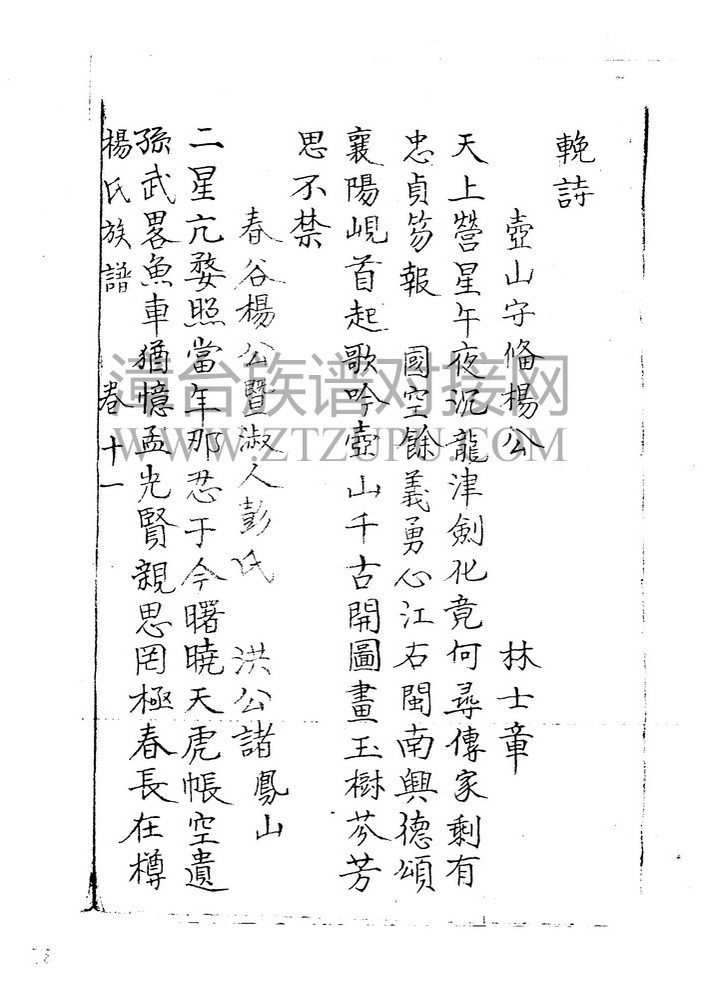 輓詩
壺山守俻楊公 林士章
天上營星午夜沉龍津劍化竟何尋傳家剩有
忠貞笏報 國空餘義勇心江右閩南興德頌
襄陽峴首起歌吟壺山千古開圖畫玉樹芬芳
思不禁
春谷楊公暨淑人彭氏 洪公諸鳳山
二星亢婺照當年那忍于今曙曉天虎帳空遺
孫武畧魚車猶憶孟光賢親思罔極春長在樽
楊氏族譜 卷十一
漳台族谱对接网
WWW.ZTZUPU.COM